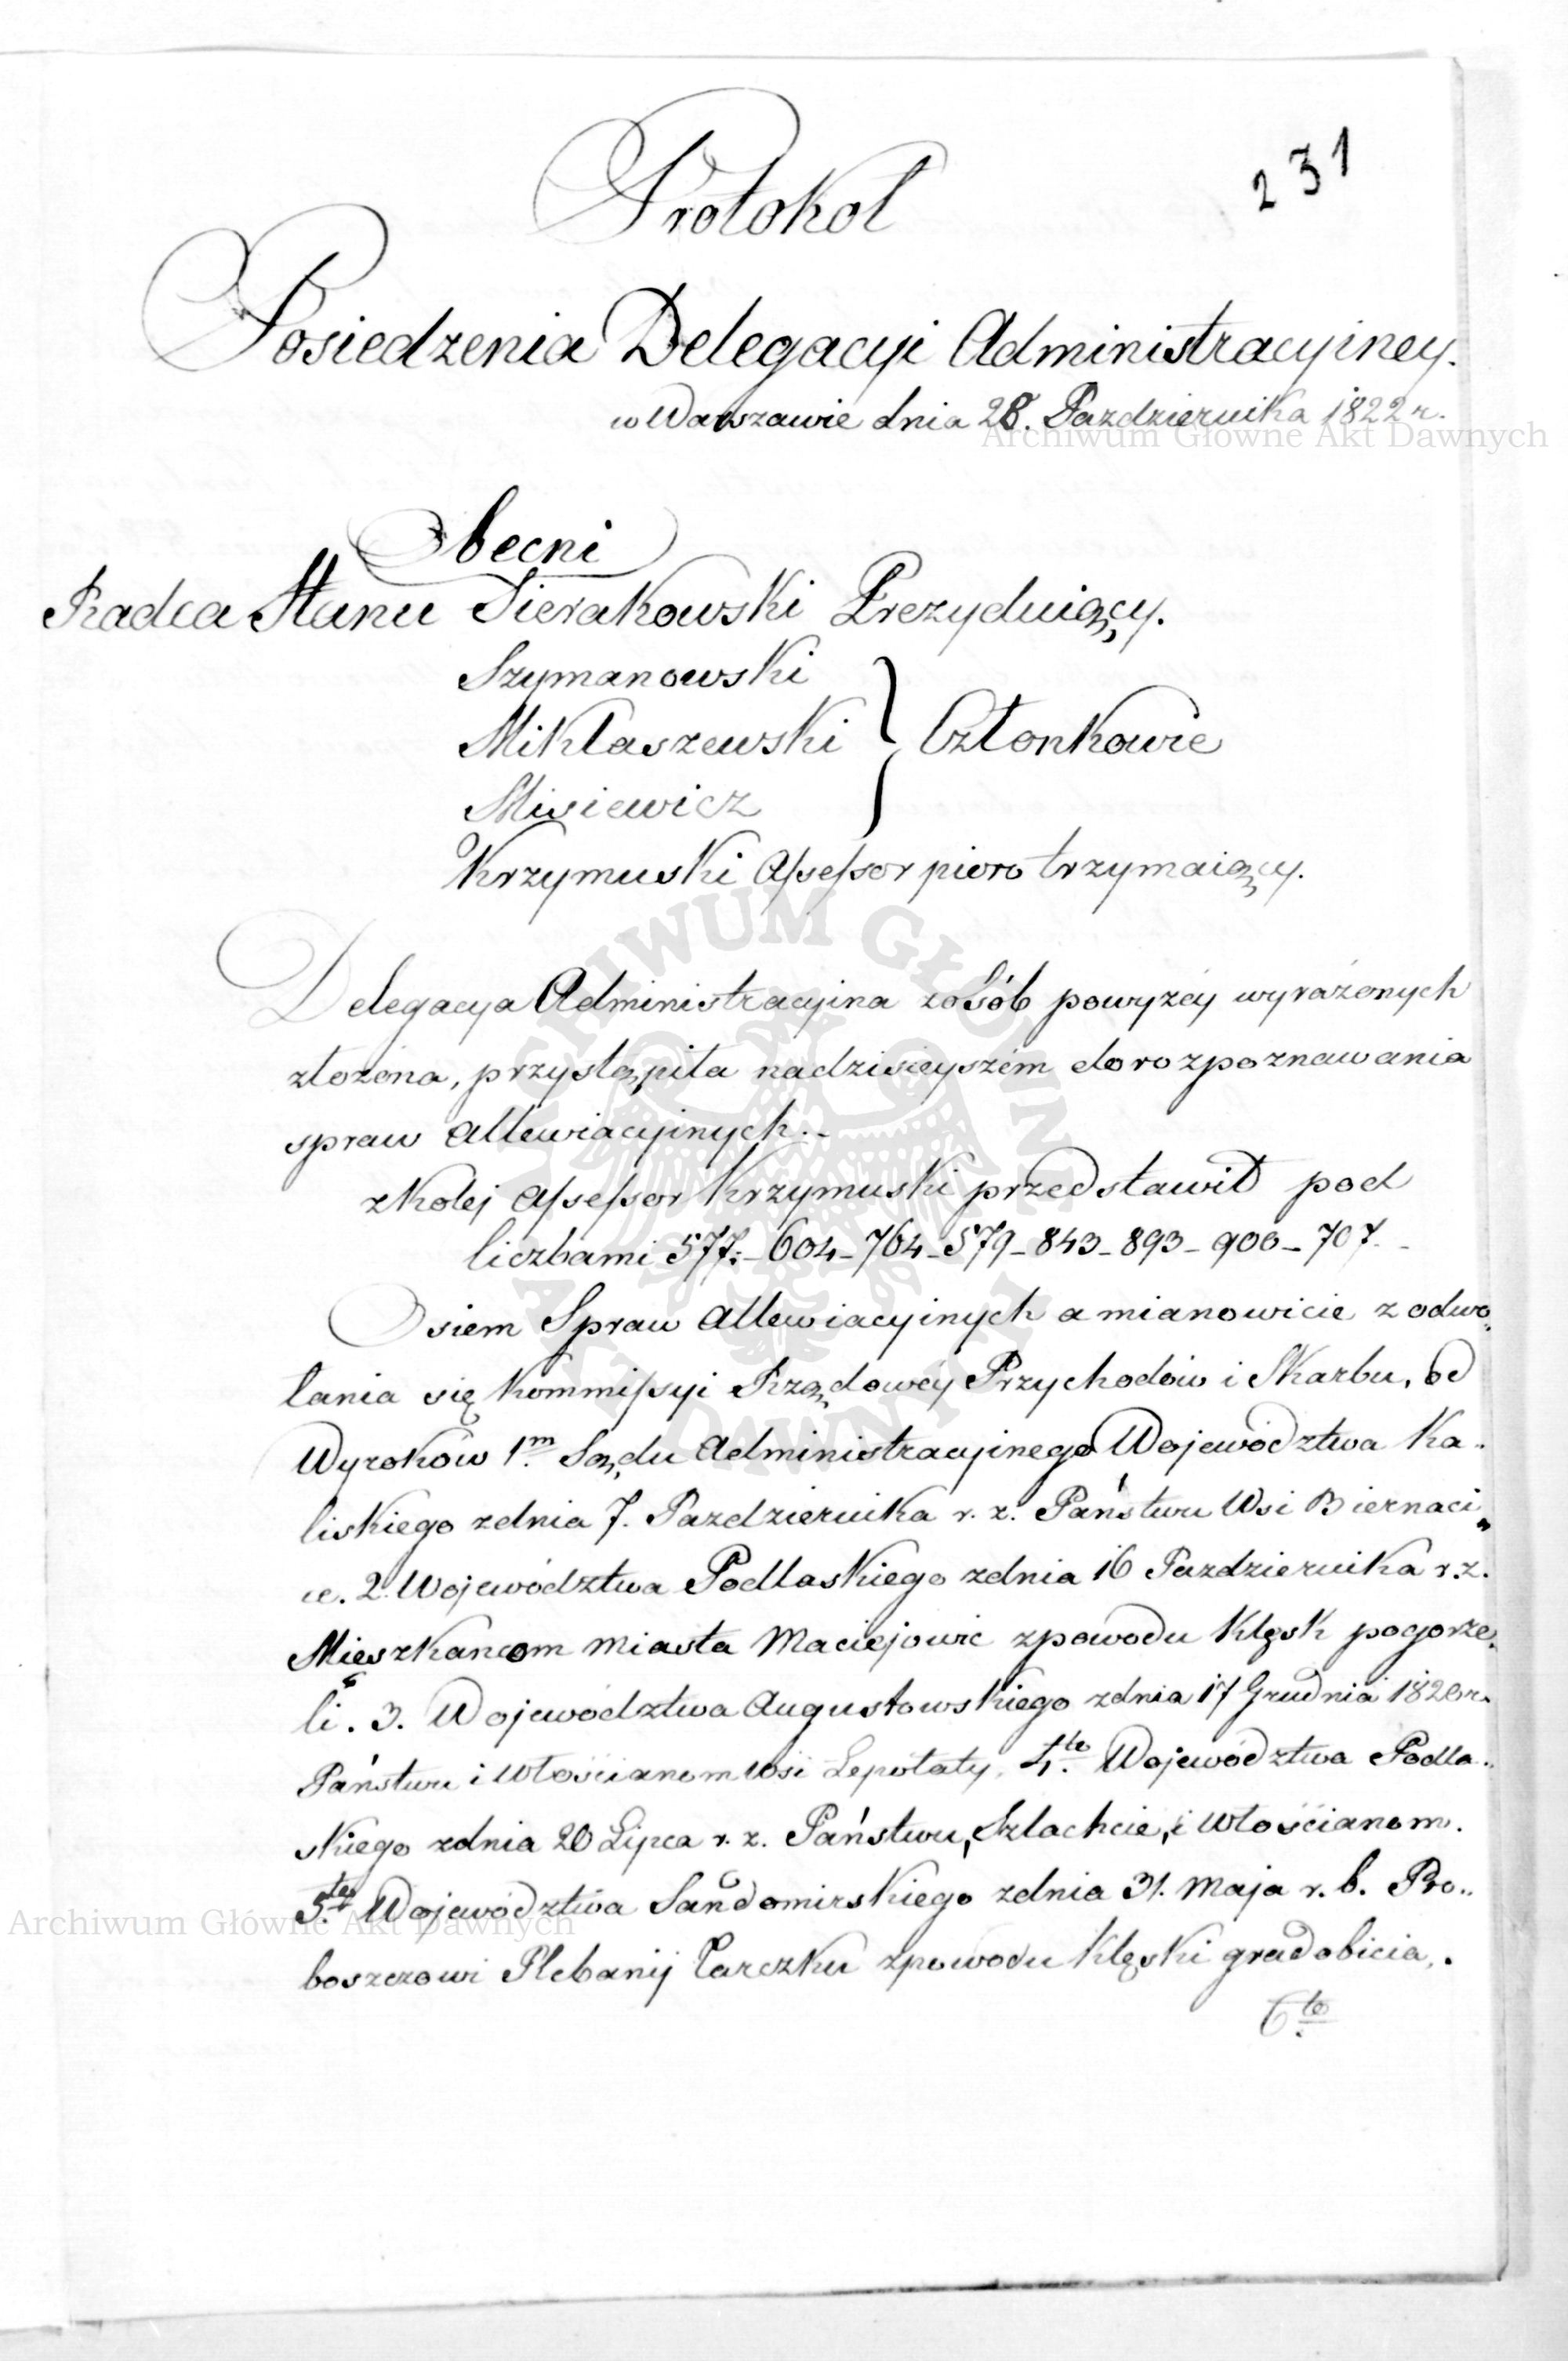 231
Protokol
Posiedzenia Delegacyi Administracyiney.
w Warszawie dnia 28. Pazdziernika 1822 r.
Archiwum Główne Akt Dawnych
Obecni
Radca Stanu Sierakowski Prezyduiący.
Szymanowski
Mikłaszewski } Członkowie
Misiewicz
Krzymuski Assessor pioro trzymaiący.
Delegacya Administracyina zosób powyżéy wyrażonych
złożona, przystąpiła nadzisieyszém do rozpoznawania
spraw allewiacyinych.-
zkoléj Assessor Krzymuski przedstawił pod
liczbami 577.-604-764-579-843-893-900-707-
Osiem Spraw allewiacyinych a mianowicie z odwo„
łania się Kommissyi Rządowéy Przychodów i Skarbu, od
Wyroków 1m Sądu Administracyinego Województwa Ka„
liskiego zdnia 7. Pazdziernika r. z. Państwu Wsi Biernaci„
ce. 2. Województwa Podlaskiego zdnia 16 Pazdziernika r. z.
Mieszkancom Miasta Maciejowic zpowodu Klęsk pogorze„
li. 3. Województwa Augustowskiego zdnia 17 Grudnia 1820 r.
Państwu i Włościanom Wsi Lepołaty, 4te Województwa Podla„
skiego zdnia 20 Lipca r. z. Państwu, Szlachcie, i Włościanom.
5te Województwa Sandomirskiego zdnia 31. Maja r. b. Pro„
Archiwum Główne Akt Dawnych
boszczowi Plebanij Tarczku zpowodu Klęski gradobicia,.
6to
ARCHIWUM GŁÓWNE AKT DAWNYCH